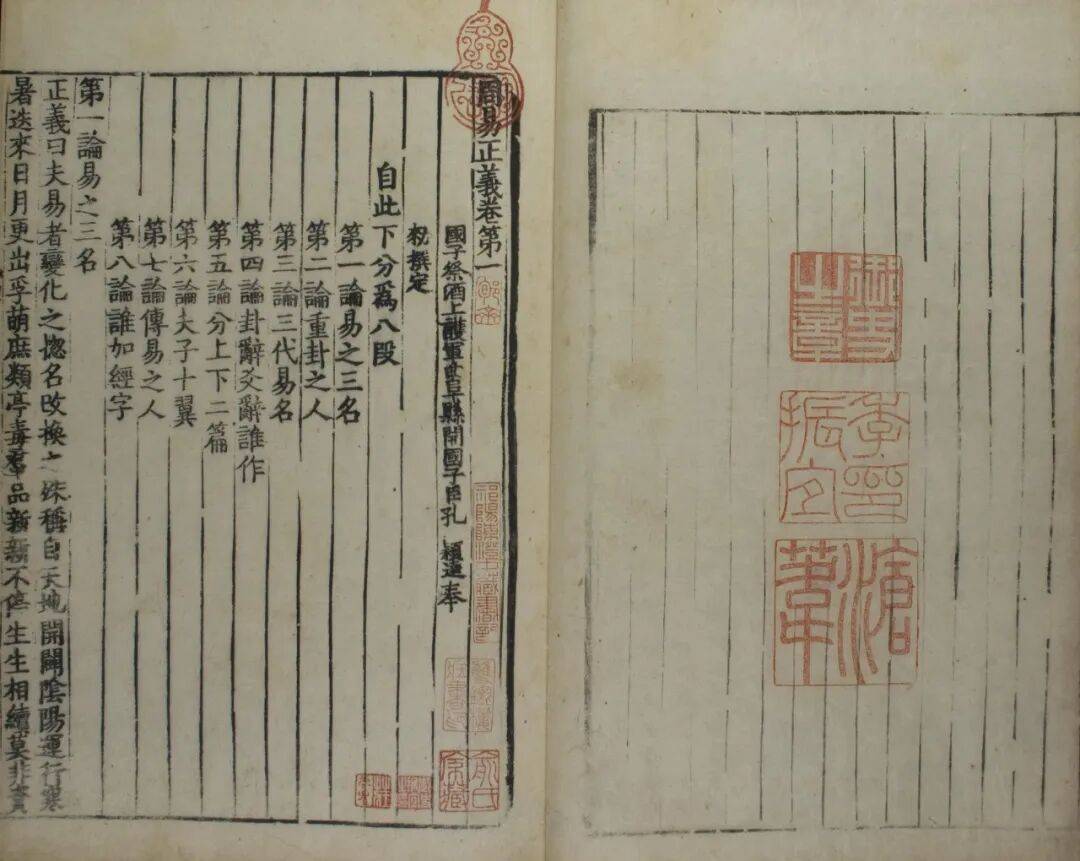 御史之章
季印振宜
滄葦
周易正義卷第一
國子祭酒上護軍曲阜縣開國子臣孔 穎達奉
勑撰定
自此下分爲八段
第一論易之三名
第二論重卦之人
第三論三代易名
第四論卦辭爻辭誰作
第五論分上下二篇
第六論夫子十翼
第七論傳易之人
第八論誰加經字
第一論易之三名
正義曰夫易者變化之揔名改換之殊稱自天地開闢陰陽運行寒
暑迭來日月更出孚萌庶類亭毒羣品新新不停生生相續莫非資
祁陽陳澄中藏書記
俞氏家藏